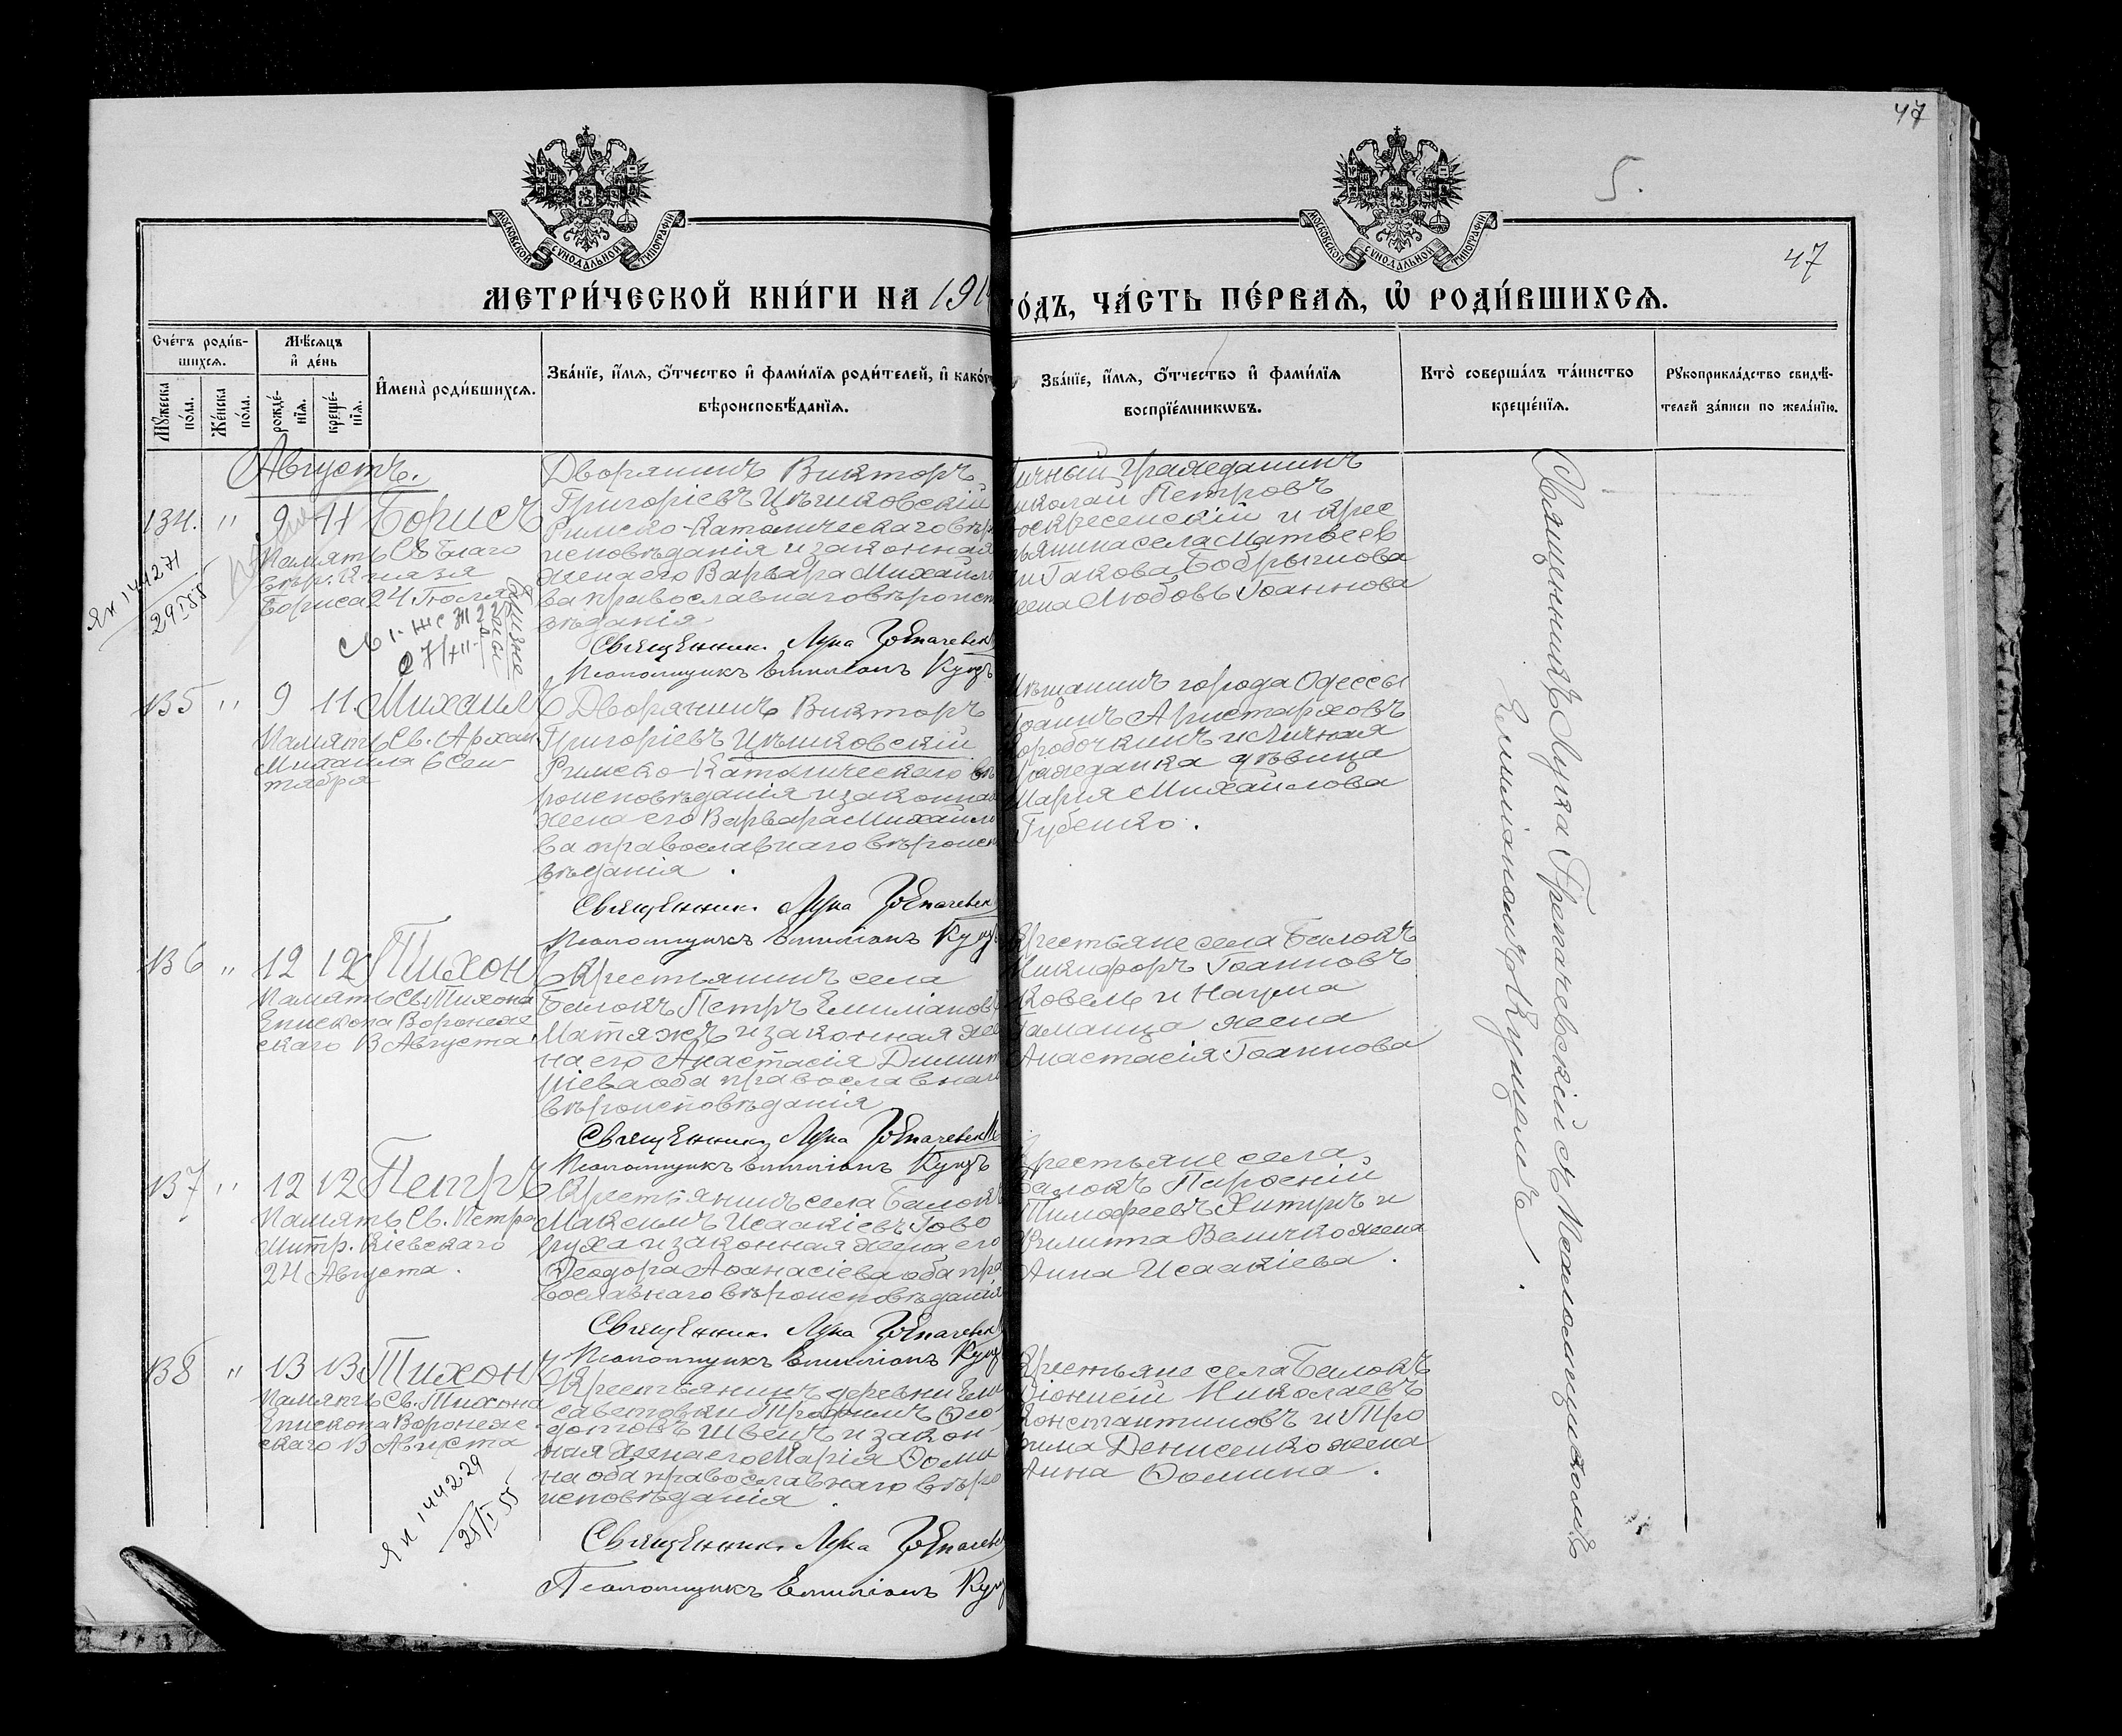 47
5.
47
МОСКОВСКОЙ СУНОДАЛЬНОЙ ТИПОГРАФІИ
МОСКОВСКОЙ СУНОДАЛЬНОЙ ТИПОГРАФІИ
МЕТРИ́ЧЕСКОЙ КНИ́ГИ НА 191
О́ДЪ, ЧА́СТЬ ПЕ́РВАѦ, Ѡ҆ РОДИ́ВШИХСѦ.
Сче́тъ роди́в-
шихсѧ.
Мꙋ́жеска по́ла.
Же́нска по́ла.
Мѣ́сѧцъ
и҆ де́нь
рожде́-
нїѧ.
креще́-
нїѧ.
И҆мена̀ роди́вшихсѧ.
Зва́нїе, и҆́мѧ, ѻ҆́тчество и҆ фами́лїѧ роди́телей, и҆ како́г
вѣроисповѣ́данїѧ.
Зва́нїе, и҆́мѧ, ѻ҆́тчество и҆ фами́лїѧ
воспрїе́мникѡвъ.
Кто̀ соверша́лъ та́инство
креще́нїѧ.
Рꙋкоприкла́дство свидѣ́-
телей за́писи по жела́нїю.
Августъ.
134. " 9 11 Борисъ
Память Св. Благо
вѣр. Князя
Бориса 24 Іюля
ЯН 144271
29 I 55
Дворянинъ Викторъ
Григоріевъ Цѣшковскій
Римско-Католическаго вѣро
исповѣданія и законная
жена его Варвара Михайло
ва православнаго вѣроисп
вѣданія
Священник. Лука
Псаломщикъ Емиліанъ Куц
ичный гражданинъ
иколай Петровъ
оскресенскій и крес
ьянина села Матвеев
ки Іакова Бобрышова
жена Любовь Іоаннова
135 " 9 11. Михаилъ
Память Св. Архан
Михаила 6 Сен
тября
Дворянинъ Викторъ
Григоріевъ Цѣшковскій
Римско-Католическаго вѣ
роисповѣданія и законная
жена его Варвара Михайло
ва православнаго вѣроисп
вѣданія.
Священник. Лука
Псаломщикъ Емиліанъ Куц
Мѣщанинъ города Одессы
Іоаннъ Аристарховъ
Коробочкинъ и Личная
гражданка дѣвица
Марія Михайлова
Губенко.
136 " 12 12 Тихонъ
Память Св. Тихона
Епископа Воронеж
скаго 13 Августа
Крестьянинъ села
Балокъ Петръ Емиліановъ
Матяжъ и законная же
на его Анастасія Димит
ріева оба православнаго
вѣроисповѣданія
Священникъ Лука
Псаломщикъ Емиліанъ Куц
Крестьяне села Балокъ
Никифоръ Іоанновъ
Ковель и Наума
Гаманца жена
Анастасія Іоаннова
137 " 12 12 Петръ
Память Св. Петра
Митр. Кіевскаго
24 Августа.
Крестьянинъ села Балокъ
Максимъ Исаакіевъ Гово
руха и законная жена его
Ѳеодора Аѳанасіева оба пра
вославнаго вѣроисповѣданія
Священник. Лука
Псаломщикъ Емиліанъ Куц
Крестьяне села
Балокъ Парѳеній
Тимофеевъ Хитрикъ и
Филиппа Величко жена
Анна Исаакіева.
138 " 13 13 Тихонъ
Память Св. Тихона
Епископа Воронеж
скаго 13 Августа
ЯН 144229
25/I 55
Крестьянинъ деревни Ели
саветовки Трофимъ Ѳео
дотовъ Швецъ и закон
ная жена его Марія Ѳоми
на оба православнаго вѣро
исповѣданія.
Священник. Лука
Псаломщикъ Емиліанъ Куц
Крестьяне села Балокъ
Діонисій Николаевъ
Константиновъ и Тро
фима Денисенко жена
Анна Ѳомина.
Священникъ Лука Грепачевскій съ Псаломщикомъ
Емиліаномъ Куцелъ.